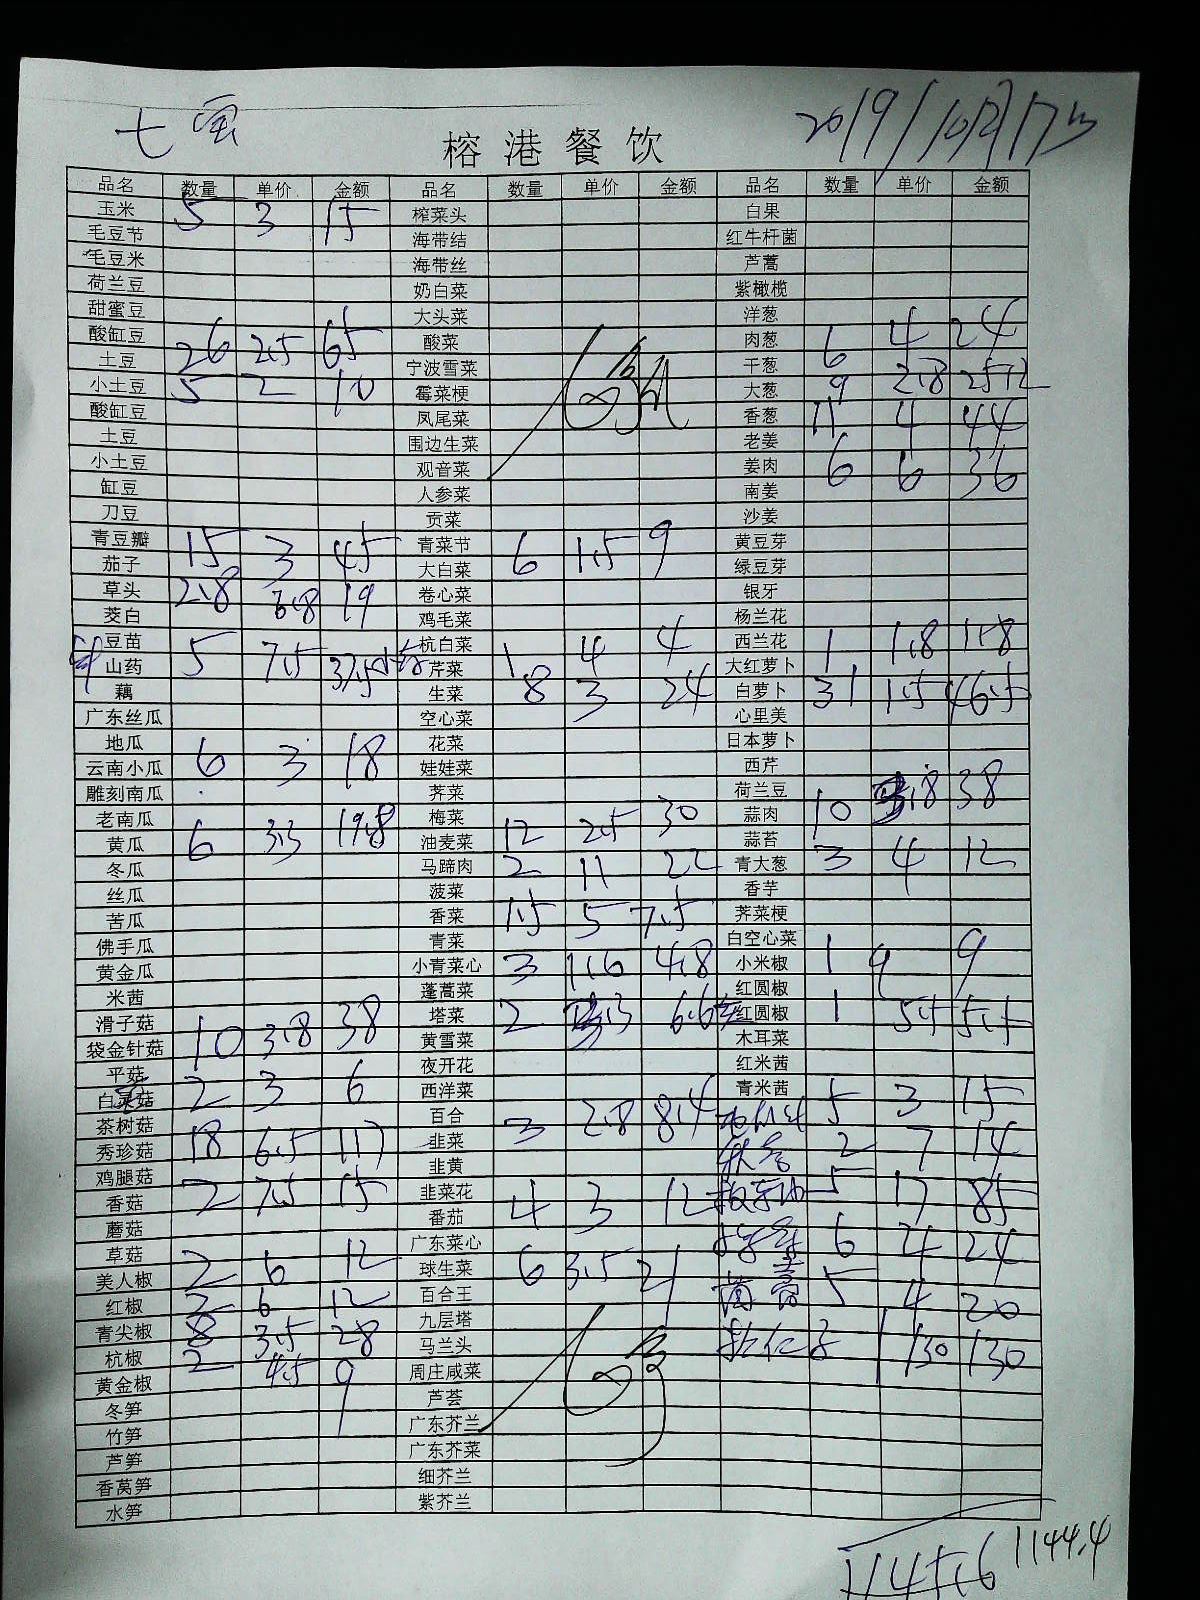 七
2019/10月17日
榕港餐饮
品名 数量 单价 金额 品名 数量 单价 金额 品名 数量 单价 金额
玉米 5 3 15 榨菜头 白果
毛豆节 海带结 红牛杆菌
毛豆米 海带丝 芦蒿
荷兰豆 奶白菜 紫橄榄
甜蜜豆 大头菜 洋葱
酸缸豆 26 2.5 65 酸菜 肉葱 6 4 24
土豆 宁波雪菜 干葱
小土豆 5 2 10 霉菜梗 大葱 9 2.8 25.2
酸缸豆 凤尾菜 香葱 11 4 44
土豆 围边生菜 老姜
小土豆 观音菜 姜肉 6 6 36
缸豆 人参菜 南姜
刀豆 贡菜 沙姜
青豆瓣 15 3 45 青菜节 黄豆芽
茄子 大白菜 6 1.5 9 绿豆芽
草头 2.8 6.8 19 卷心菜 银牙
茭白 鸡毛菜 杨兰花
豆苗 杭白菜 1 4 4 西兰花 1 1.8 1.8
山药 5 7.5 37.5 芹菜 大红萝卜
藕 生菜 8 3 24 白萝卜 31 1.5 46.5
广东丝瓜 空心菜 心里美
地瓜 花菜 日本萝卜
云南小瓜 6 3 18 娃娃菜 西芹
雕刻南瓜 荠菜 荷兰豆
老南瓜 梅菜 蒜肉 10 3.8 38
黄瓜 6 3.3 19.8 油麦菜 12 2.5 30 蒜苔
冬瓜 马蹄肉 2 11 22 青大葱 3 4 12
丝瓜 菠菜 香芋
苦瓜 香菜 1.5 5 7.5 荠菜梗
佛手瓜 青菜 白空心菜
黄金瓜 小青菜心 3 1.6 4.8 小米椒 1 9 9
米茜 蓬蒿菜 红圆椒
滑子菇 塔菜 2 3.3 6.6 红圆椒 1 5.5 5.5
袋金针菇 10 3.8 38 黄雪菜 木耳菜
平菇 夜开花 红米茜
白灵菇 2 3 6 西洋菜 青米茜 5 3 15
茶树菇 百合 3 2.8 8.4
秀珍菇 18 6.5 117 韭菜 2 7 14
鸡腿菇 韭黄 5 17 85
香菇 2 7.5 15 韭菜花
蘑菇 番茄 4 3 12 6 4 24
草菇 广东菜心
美人椒 2 6 12 球生菜 6 3.5 21 茼蒿 5 4 20
红椒 2 6 12 百合王
青尖椒 8 3.5 28 九层塔 1 130 130
杭椒 2 4.5 9 马兰头
黄金椒 周庄咸菜
冬笋 芦荟
竹笋 广东芥兰
芦笋 广东芥菜
香莴笋 细芥兰
水笋 紫芥兰
1145.6 1144.4